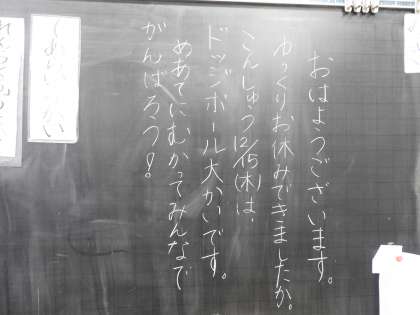 おはようございます。
ゆっくりお休みできましたか。
こんしゅう12/15(木)は、
ドッジボール大かいです。
めあてにむかってみんなで
がんばろう!